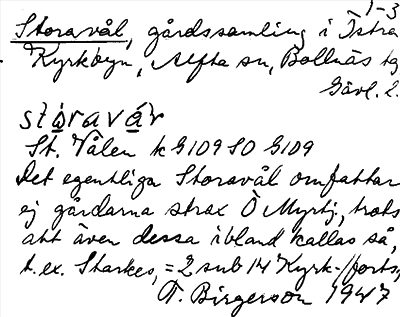 1-3
Storavål, gårdssamling i Östra
Kyrkbyn, Alfta sn, Bollnäs tg
Gävl. l.
stòravár
St. Vålen k G109 SO G109
Det egentliga Storavål omfattar
ej gårdarna strax Ö Myrtj, trots
att även dessa ibland kallas så,
t. ex. Starkes, = 2 sub 14 Kyrk- /forts,
T. Birgerson 1947